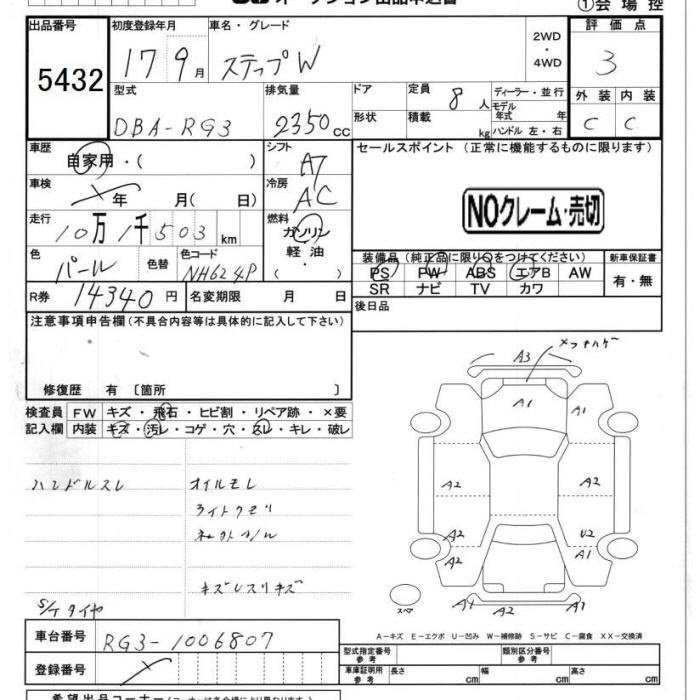 ①会場控
出品番号 初度登録年月 車名・グレード 2WD・4WD 評価点
5432 17 9月 ステップW 3
型式 排気量 ドア 定員 8人 ディーラー・並行 外装 内装
DBA-RG3 2350cc 形状 積載 kg モデル年式 年 ハンドル 左・右 C C
車歴 自家用・( ) シフト AT セールスポイント (正常に機能するものに限ります)
車検 年 月( 日) 冷房 AC
NOクレーム・売切
走行 10万1千503km 燃料 ガソリン 軽油
色 パール 色替 色コード NH624P
装備品 (純正品に限り○をつけてください) 新車保証書
PS PW ABS エアB AW 有・無
SR ナビ TV カワ
R券 14340円 名変期限 月 日 後日品
注意事項申告欄 (不具合内容等は具体的に記入して下さい)
修復歴 有 〔箇所 〕
検査員 FW キズ・飛石・ヒビ割・リペア跡・×要
記入欄 内装 キズ・汚レ・コゲ・穴・スレ・キレ・破レ
A3
A1 A1
A2 A2
A2 A2 U2
A2 A1
A4 A2 A2
ハンドルスレ オイルモレ
ライトクモリ
S/ケタイヤ
スペア
A-キズ E-エクボ U-凹み W-補修跡 S-サビ C-腐食 XX-交換済
車台番号 RG3-1006807
型式指定番号 参考 類別区分番号 参考
登録番号
車庫証明用 参考 長さ cm 幅 cm 高さ cm
希望出品コーナー